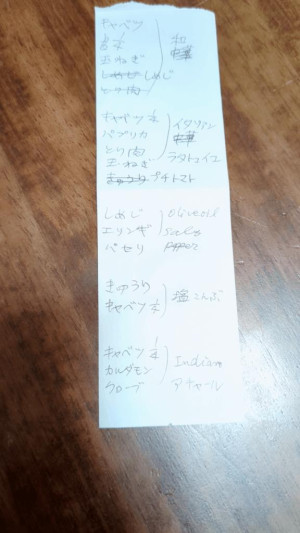 キャベツ
玉ねぎ 和
しめじ
キャベツ 1/4 イタリアン
パプリカ
とり肉
玉ねぎ ラタトゥイユ
きゅうり プチトマト
しめじ Olive oil
エリンギ Salt
パセリ
きゅうり 塩こんぶ
キャベツ 1/4
キャベツ 1/4 Indian
カルダモン
クローブ アチャール